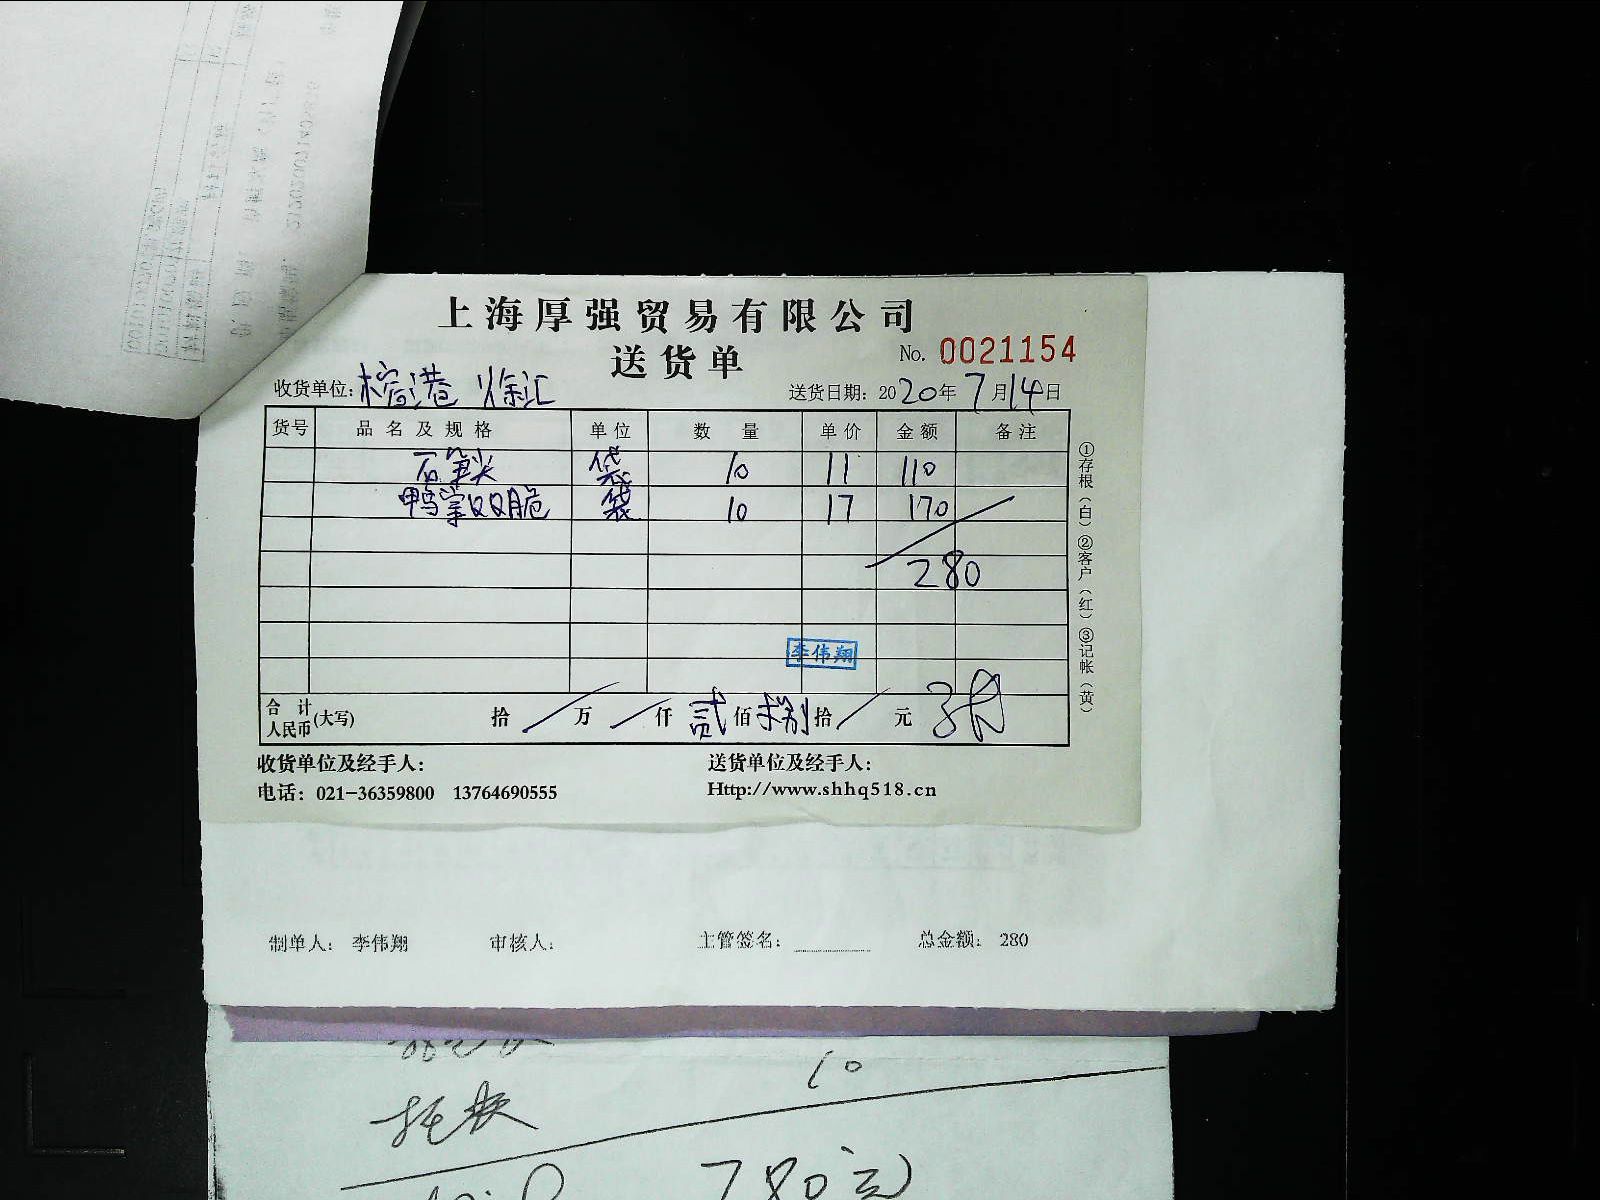 上海厚强贸易有限公司
送货单 No. 0021154
收货单位: 榕港 徐汇 送货日期: 2020年7月14日
货号 品名及规格 单位 数量 单价 金额 备注
石笋尖 袋 10 11 110
鸭掌双脆 袋 10 17 170
280
李伟翔
合计人民币(大写) 拾 / 万 / 仟 贰 佰 捌 拾 / 元
①存根(白)②客户(红)③记帐(黄)
收货单位及经手人: 送货单位及经手人:
电话: 021-36359800 13764690555 Http://www.shhq518.cn
制单人: 李伟翔 审核人: 主管签名: 总金额: 280
10
780元